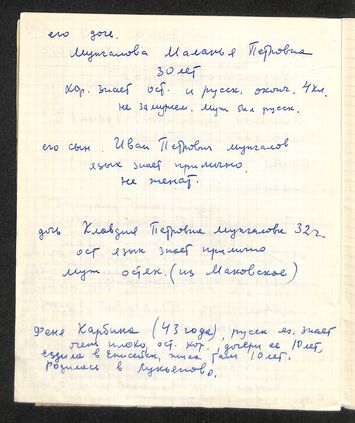 его дочь.
Мунгалова Маланья Петровна
30 лет
хор. знает ост. и русск. оконч. 4 кл.
не замужем. Муж был русск.
его сын. Иван Петрович Мунгалов
язык знает прилично.
не женат.
дочь Клавдия Петровна Мунгалова 32 г.
ост язык знает прилично
муж остяк. (из Маковское)
Феня Карбина (43 года), русск яз. знает
очень плохо, ост. хор., дочери ее 10 лет,
ездила в Енисейск, жила там 10 лет.
Родилась в Лукьяново.